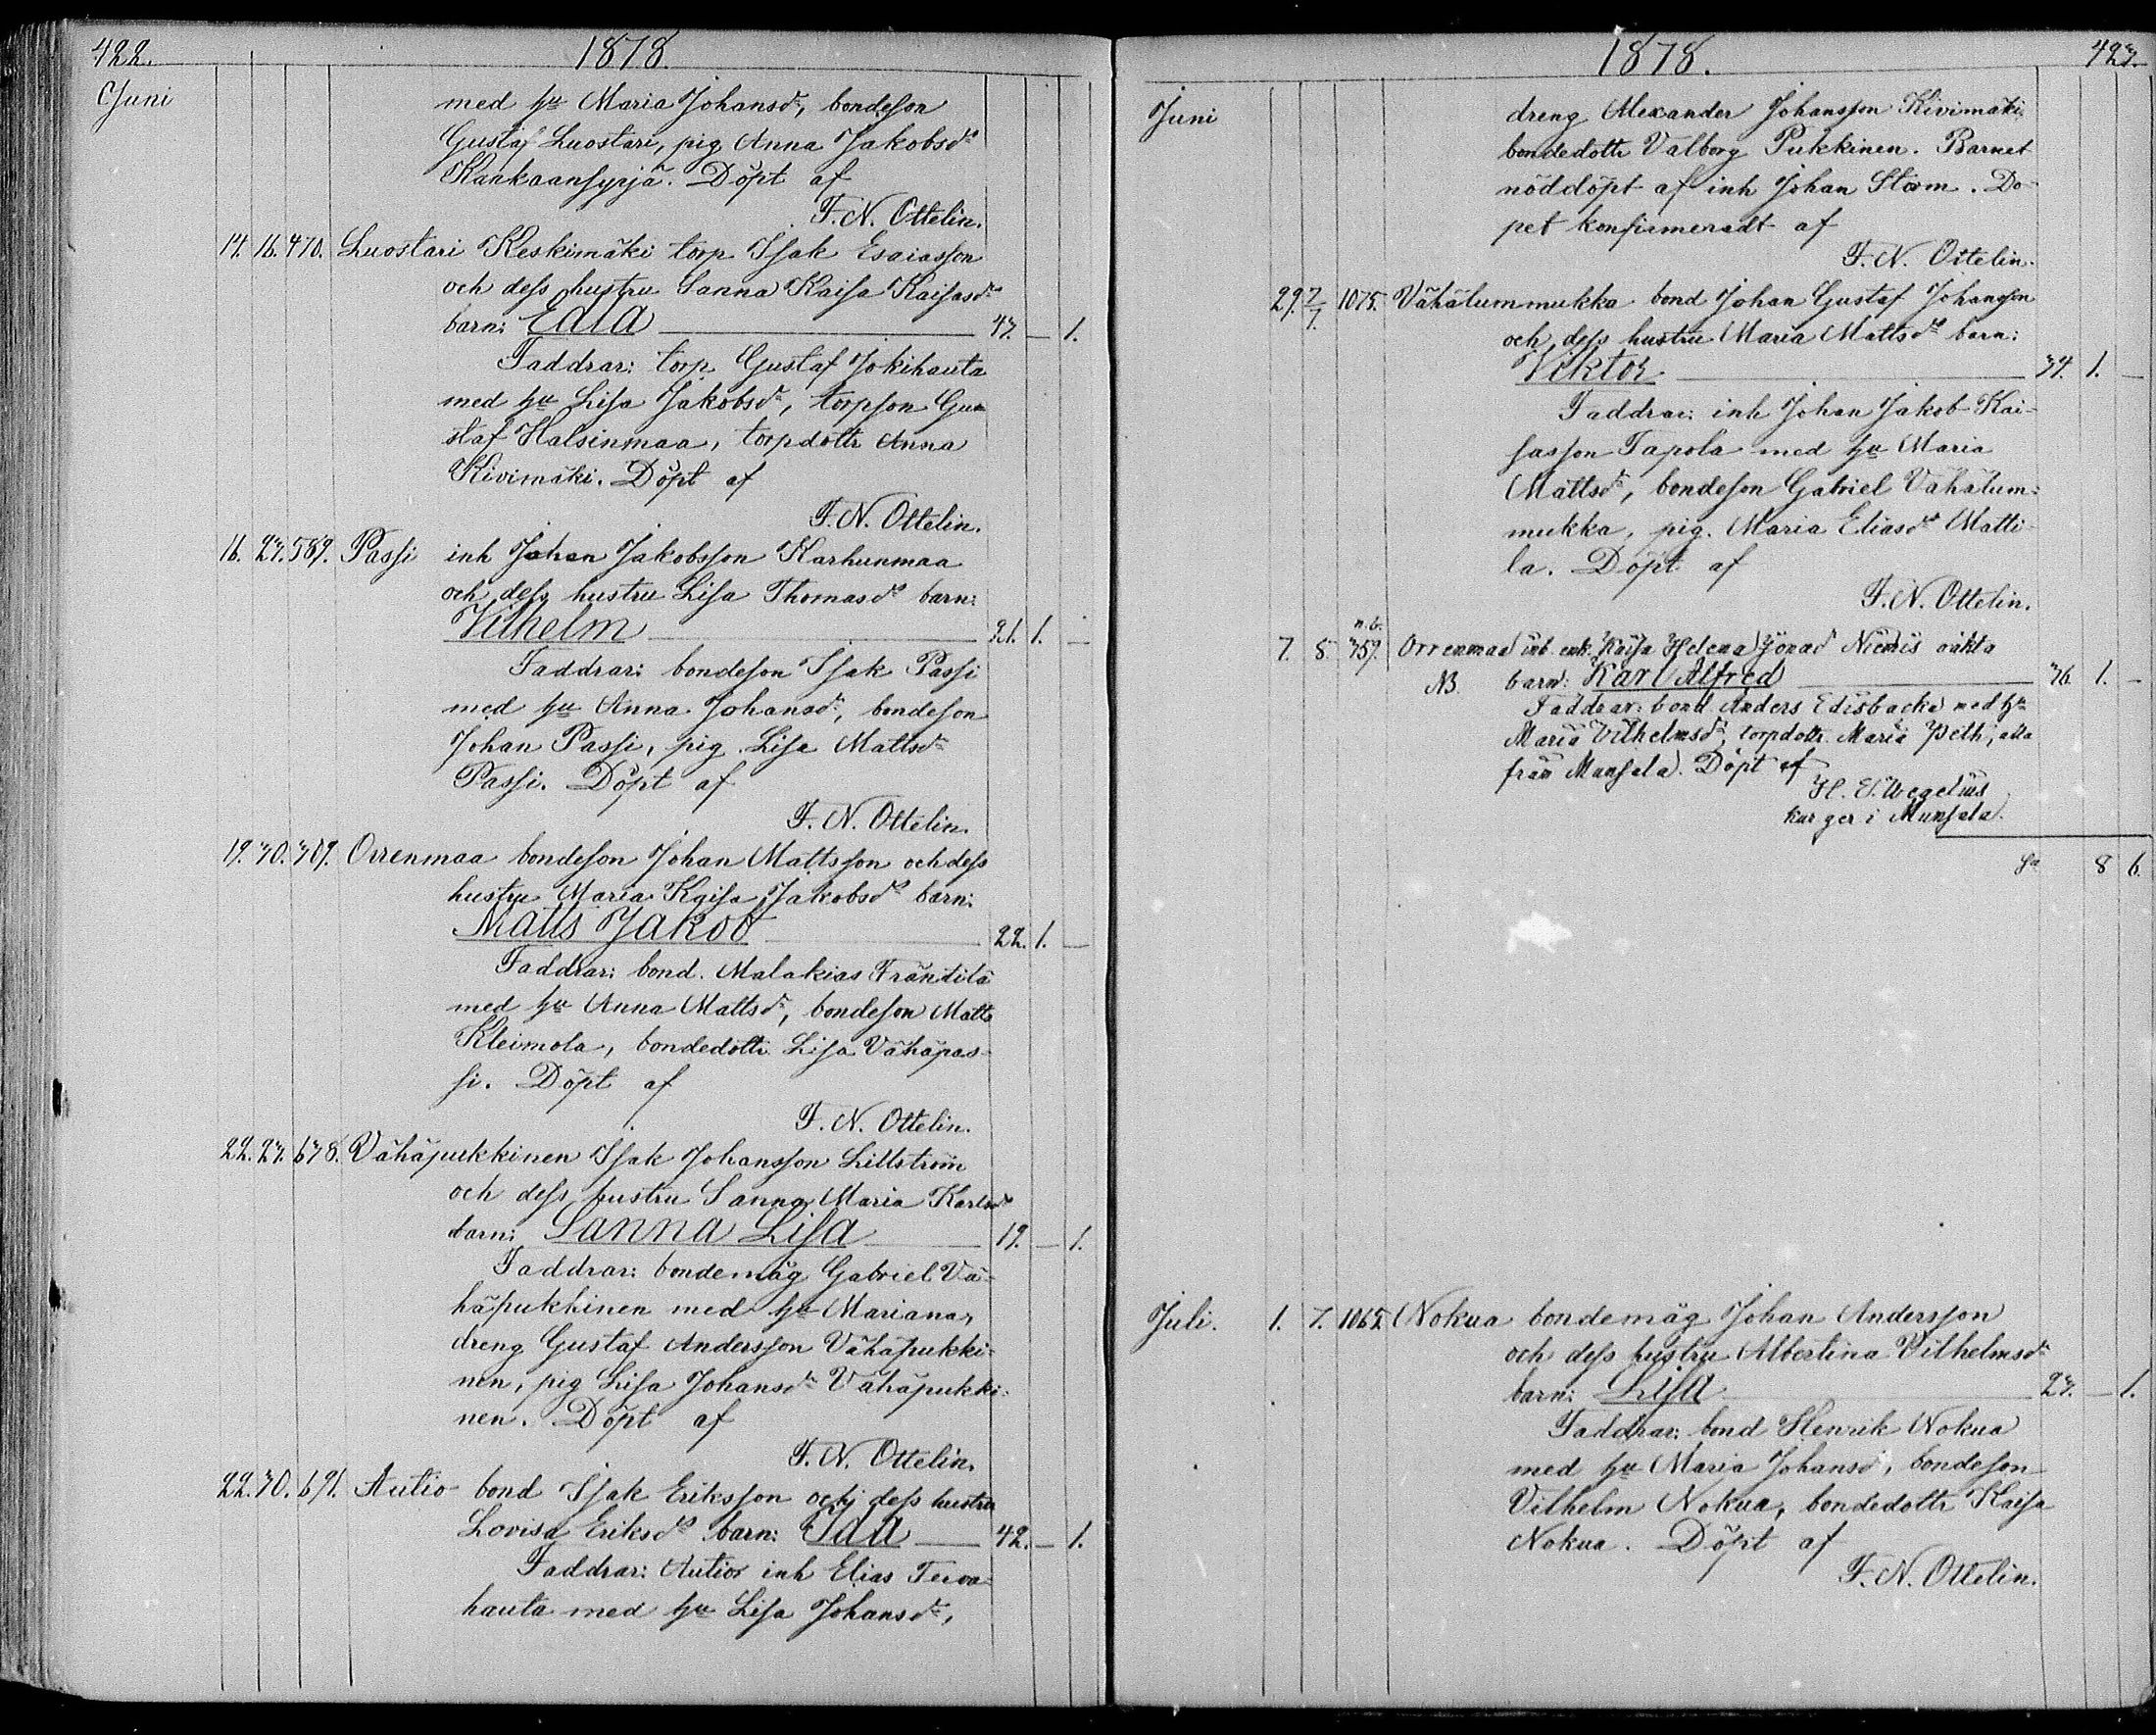 422.
1878.
Juni
med hu Maria Johansdr, bondeson
Gustaf Luostari, pig Anna Jakobsdr
Kankaansyrjä. Döpt af
F. N. Ottelin.
14. 16. 470. Luostari Keskimäki torp Isak Esaiasson
och dess hustru Sanna Kaisa Kaisasdr
barn: Edla 43. — 1.
Faddrar: torp Gustaf Jokihauta
med hu Lisa Jakobsdr, torpson Gu-
staf Halsinmaa, torpdottr Anna
Kivimäki. Döpt af
F. N. Ottelin.
16. 23. 589. Passi inh Johan Jakobsson Karhunmaa
och dess hustru Lisa Thomasdr barn:
Vilhelm 21. 1. —
Faddrar: bondeson Isak Passi
med hu Anna Johansdr, bondeson
Johan Passi, pig Lisa Mattsdr
Passi. Döpt af
F. N. Ottelin.
19. 30. 309. Orrenmaa bondeson Johan Mattsson och dess
hustru Maria Kaisa Jakobsdr barn:
Matts Jakob 22. 1. —
Faddrar: bond. Malakias Fräntilä
med hu Anna Mattsdr, bondeson Matts
Kleimola, bondedottr Lisa Vähäpas-
si. Döpt af
F. N. Ottelin.
22. 23. 638. Vähäpukkinen Isak Johansson Lillström
och dess hustru Sanna Maria Karlsdr
barn: Sanna Lisa 19. — 1.
Faddrar: bondemåg Gabriel Vä-
häpukkinen med hu Mariana,
dreng Gustaf Andersson Vähäpukki-
nen, pig Lisa Johansdr Vähäpukki-
nen. Döpt af
F. N. Ottelin.
22. 30. 691. Autio bond Isak Eriksson och dess hustru
Lovisa Eriksdr barn: Ida 42. — 1.
Faddrar: Autio inh Elias Terva-
hauta med hu Lisa Johansdr,
1878.
423.
Juni
dreng Alexander Johansson Kivimäki
bondedottr Valborg Pukkinen. Barnet
nöddöpt af inh Johan Storm. Do-
pet konfirmeradt af
F. N. Ottelin.
29. 7/7. 1075. Vähälummukka bond Johan Gustaf Johansson
och dess hustru Maria Mattsdr barn:
Viktor 34. 1. —
Faddrar: inh Johan Jakob Kai-
sasson Tapola med hu Maria
Mattsdr, bondeson Gabriel Vähälum-
mukka, pig. Maria Eliasdr Matti-
la. Döpt af
F. N. Ottelin.
n. b.
7. 8. 359. Orrenmaa inh enk. Kaisa Helena Jonasd Niemis oäkta
NB. barn: Karl Alfred 36. 1. —
Faddrar: bond Anders Edisbacka med hu
Maria Vilhelmsdr, torpdottr. Maria Peth, alla
från Munsala. Döpt af
H. E. Wegelius
kar ger i Munsala.
Sa 8 6.
Juli. 1. 7. 1065. Nokua bondemåg Johan Andersson
och dess hustru Albertina Vilhelmsdr
barn: Lisa 23. — 1.
Faddrar: bond Henrik Nokua
med hu Maria Johansd, bondeson
Vilhelm Nokua, bondedottr Kaisa
Nokua. Döpt af
F. N. Ottelin.